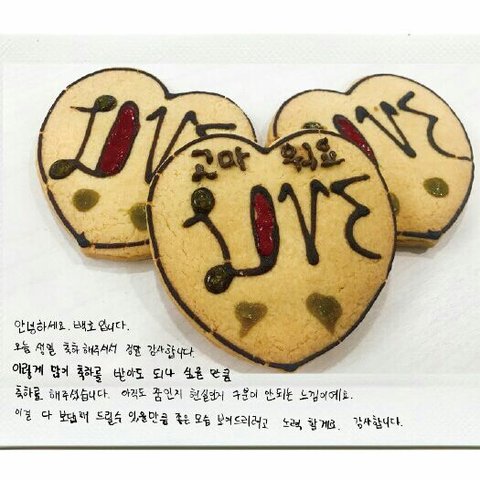 LOVE
LOVE
고마워요
LOVE
안녕하세요. 백호 입니다.
오늘 생일 축하 해주셔서 정말 감사합니다.
이렇게 많이 축하를 받아도 되나 싶을 만큼
축하를 해주셨습니다. 아직도 꿈인지 현실인지 구분이 안되는 느낌이에요.
이걸 다 보답해 드릴수 있을만큼 좋은 모습 보여드리려고 노력 할게요. 감사합니다.